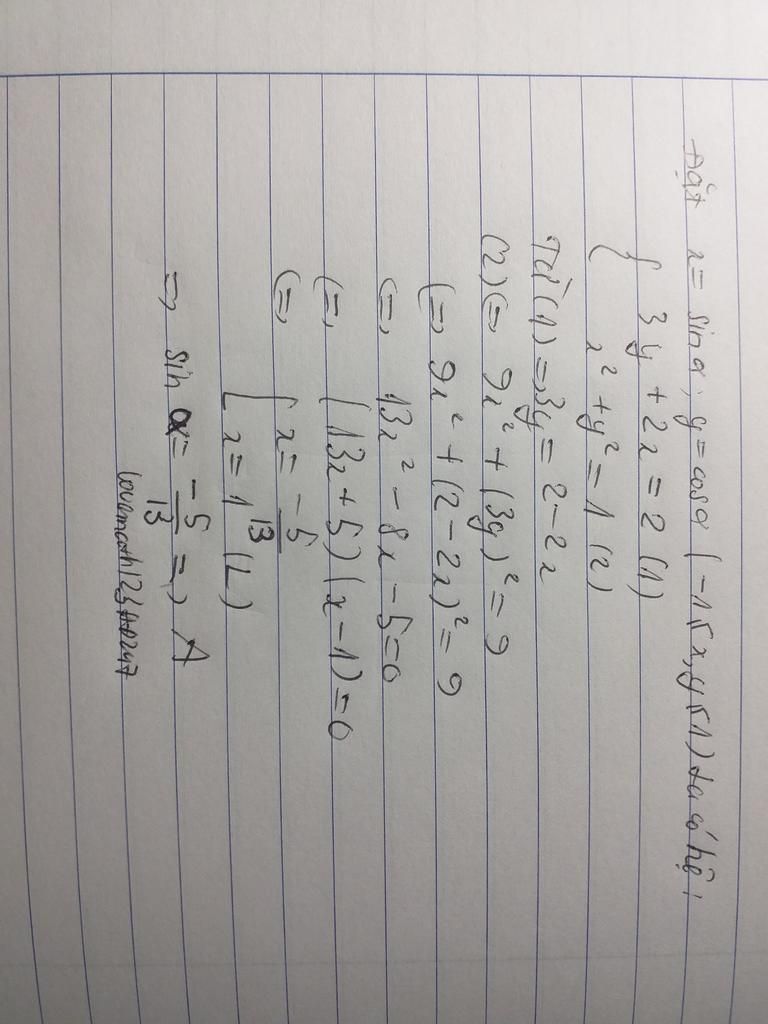 Đặt x = sin α, y = cos α (-1 ≤ x, y ≤ 1) ta có hệ:
{ 3y + 2x = 2 (1)
x² + y² = 1 (2)
Từ (1) => 3y = 2 - 2x
(2) <=> 9x² + (3y)² = 9
<=> 9x² + (2 - 2x)² = 9
<=> 13x² - 8x - 5 = 0
<=> (13x + 5)(x - 1) = 0
<=> [ x = -5/13
x = 1 (L)
=> sin α = -5/13 => A